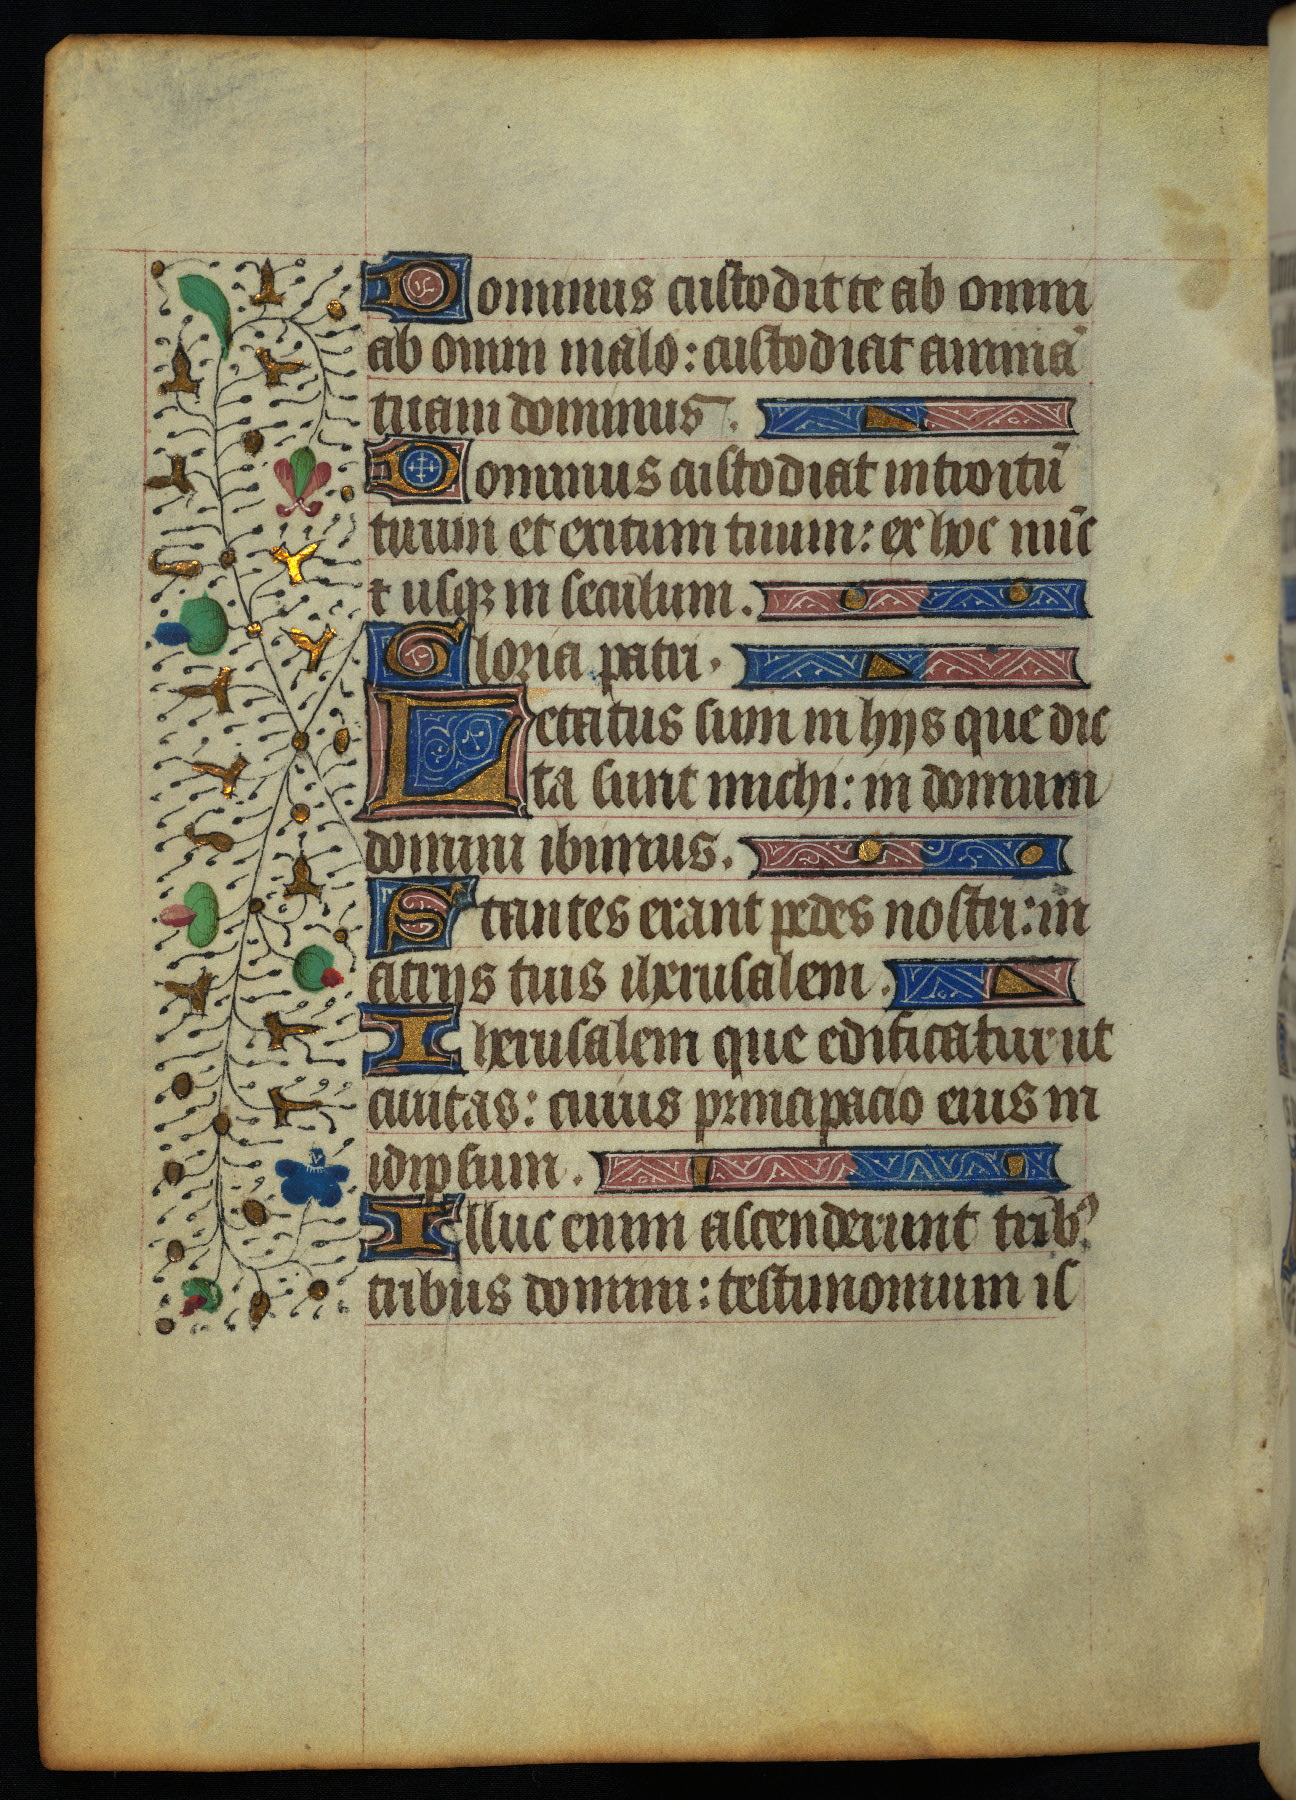 Dominus custodit te ab omni
ab omni malo: custodiat animā
tuam dominus.
Dominus custodiat introitū
tuum et exitum tuum: ex hoc nūc
t usqꝫ in seculum.
Gloria patri.
Letatus sum in hijs que dic
ta sunt michi: in domum
domini ibimus.
Stantes erant pedes nostri: in
atrijs tuis iherusalem.
Iherusalem que edificatur ut
ciuitas: cuius principacio eius in
idipsum.
Illuc enim ascenderunt tribꝰ
tribus domini: testimonium is